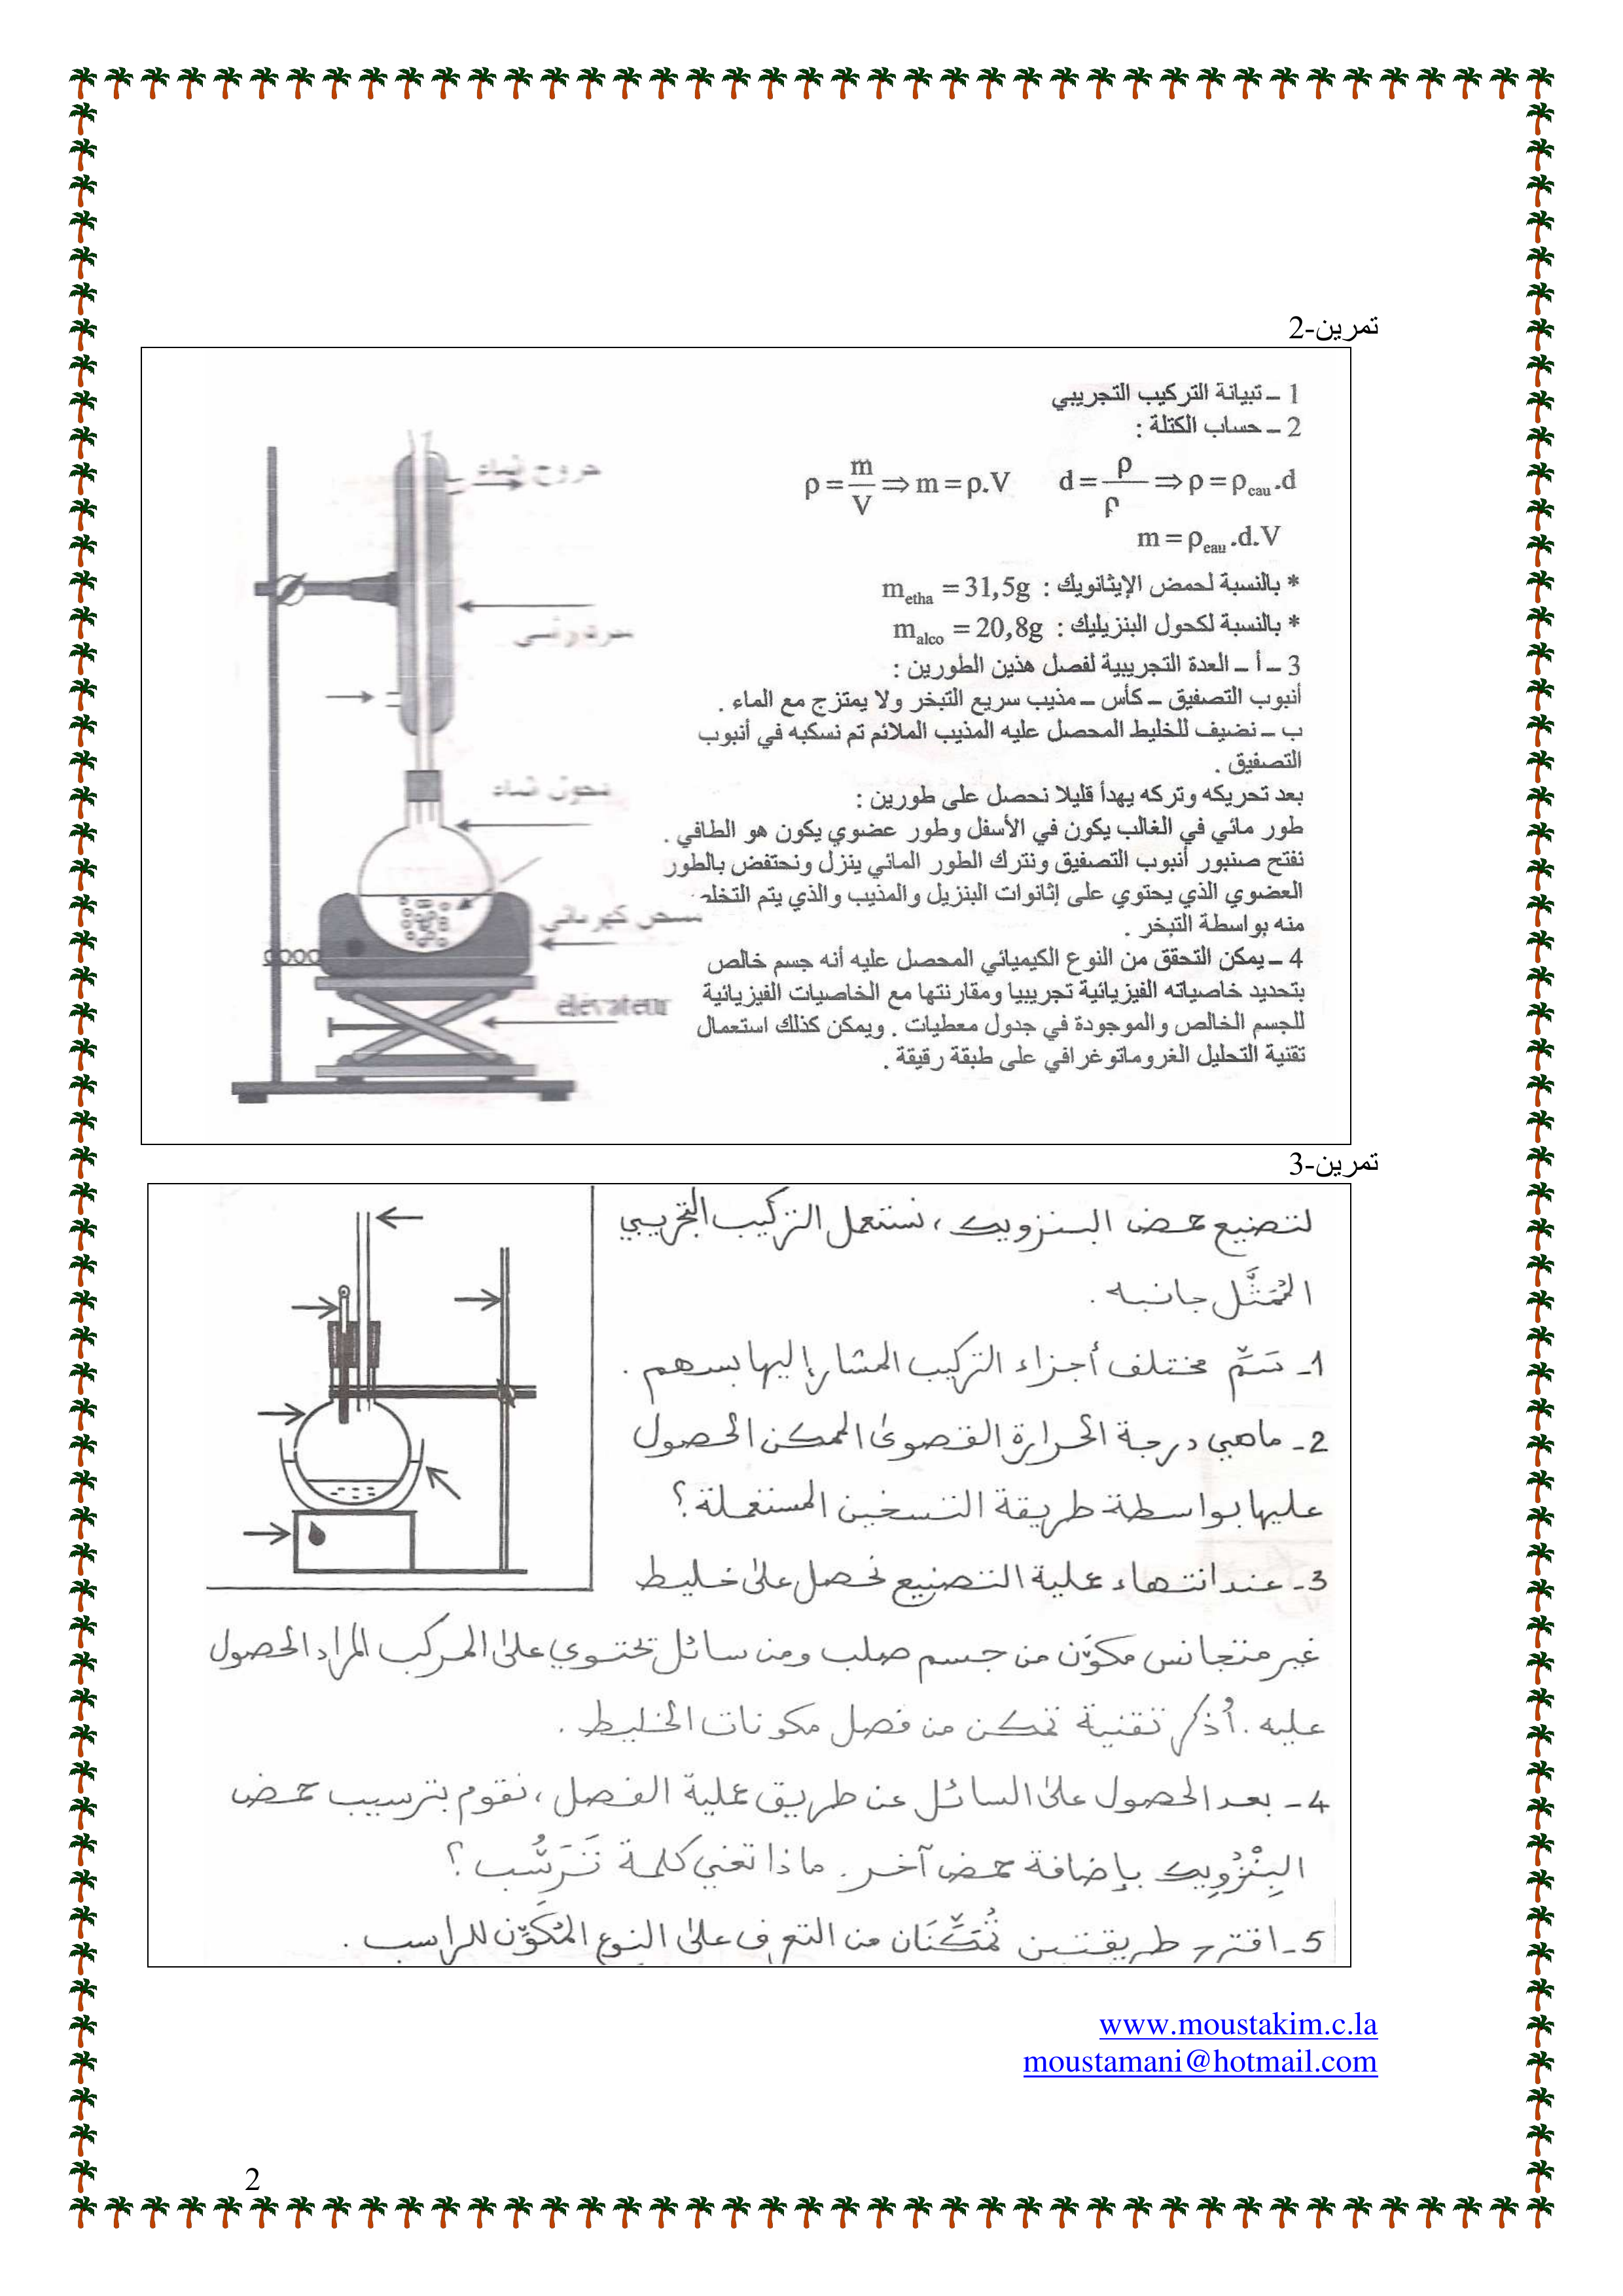 تمرين-2
1 ـ تبيانة التركيب التجريبي
2 ـ حساب الكتلة :
d = ρ/ρ ⇒ ρ = ρeau.d    ρ = m/V ⇒ m = ρ.V
m = ρeau.d.V
* بالنسبة لحمض الإيثانويك : metha = 31,5g
* بالنسبة لكحول البنزيليك : malco = 20,8g
3 ـ أ ـ العدة التجريبية لفصل هذين الطورين :
أنبوب التصفيق ـ كأس ـ مذيب سريع التبخر ولا يمتزج مع الماء .
ب ـ نضيف للخليط المحصل عليه المذيب الملائم تم نسكبه في أنبوب
التصفيق .
بعد تحريكه وتركه يهدأ قليلا نحصل على طورين :
طور مائي في الغالب يكون في الأسفل وطور عضوي يكون هو الطافي .
نفتح صنبور أنبوب التصفيق ونترك الطور المائي ينزل ونحتفض بالطور
العضوي الذي يحتوي على إثانوات البنزيل والمذيب والذي يتم التخلـ
منه بواسطة التبخر .
4 ـ يمكن التحقق من النوع الكيميائي المحصل عليه أنه جسم خالص
بتحديد خاصياته الفيزيائية تجريبيا ومقارنتها مع الخاصيات الفيزيائية
للجسم الخالص والموجودة في جدول معطيات . ويمكن كذلك استعمال
تقنية التحليل الغروماتوغرافي على طبقة رقيقة .
خروج الماء
كهربائي
élévateur
تمرين-3
لتصنيع حمض البنزويك ، نستعمل التركيب التجريبي
المُمَثَّل جانبه .
1- سَمِّ مختلف أجزاء التركيب المشار إليها بسهم .
2- ماهي درجة الحرارة القصوى الممكن الحصول
عليها بواسطة طريقة التسخين المستعملة ؟
3- عند انتهاء عملية التصنيع نحصل على خليط
غير متجانس مكوّن من جسم صلب ومن سائل يحتوي على المركب المراد الحصول
عليه . أذكر تقنية تمكن من فصل مكونات الخليط .
4- بعد الحصول على السائل عن طريق عملية الفصل ، نقوم بترسيب حمض
البِنْزُوِيك بإضافة حمض آخر . ماذا تعني كلمة تَرَسُّب ؟
5- اقترح طريقتين تُمَكِّنَان من التعرف على النوع المُكَوِّن للراسب .
www.moustakim.c.la
moustamani@hotmail.com
2